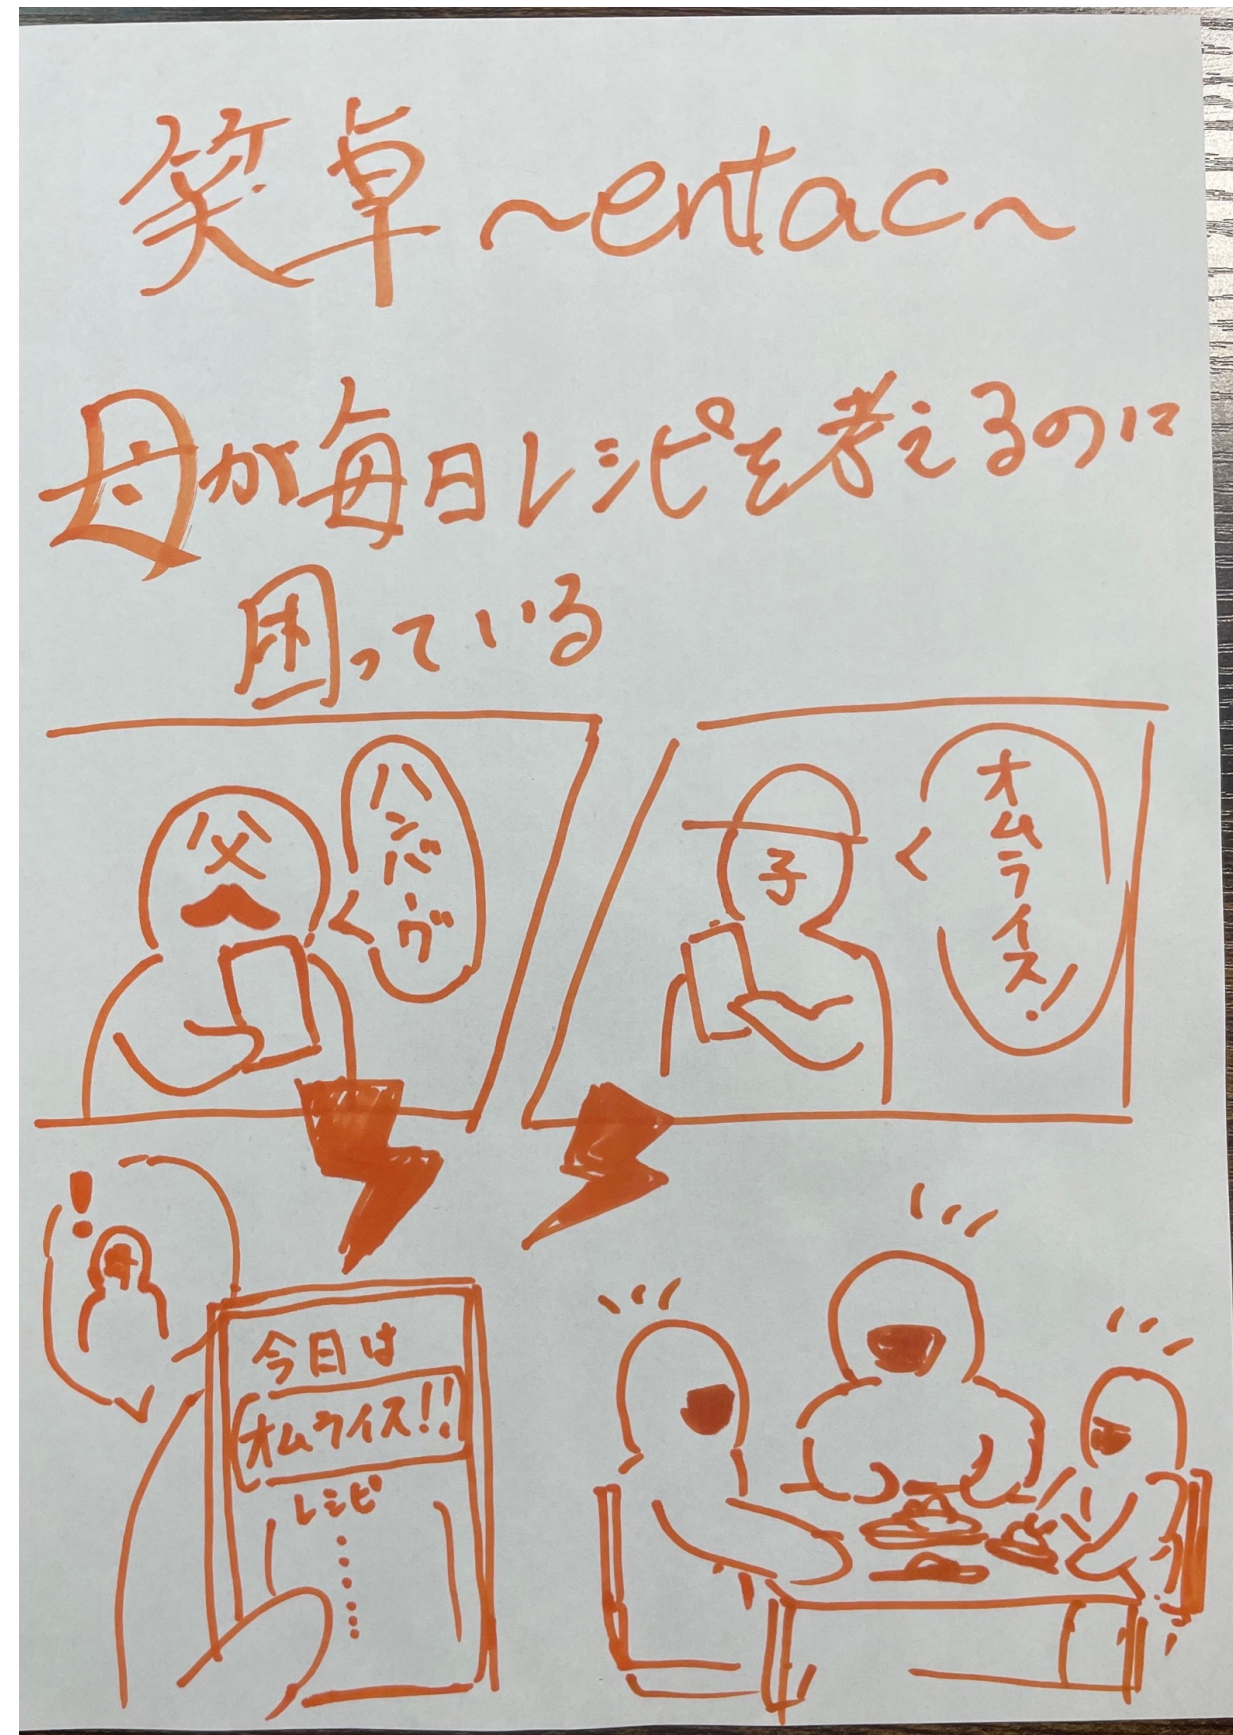 笑卓 ~entac~
母が毎日レシピを考えるのに
困っている
父
ハンバーグ
子
オムライス!
!
母
今日は
オムライス!!
レシピ